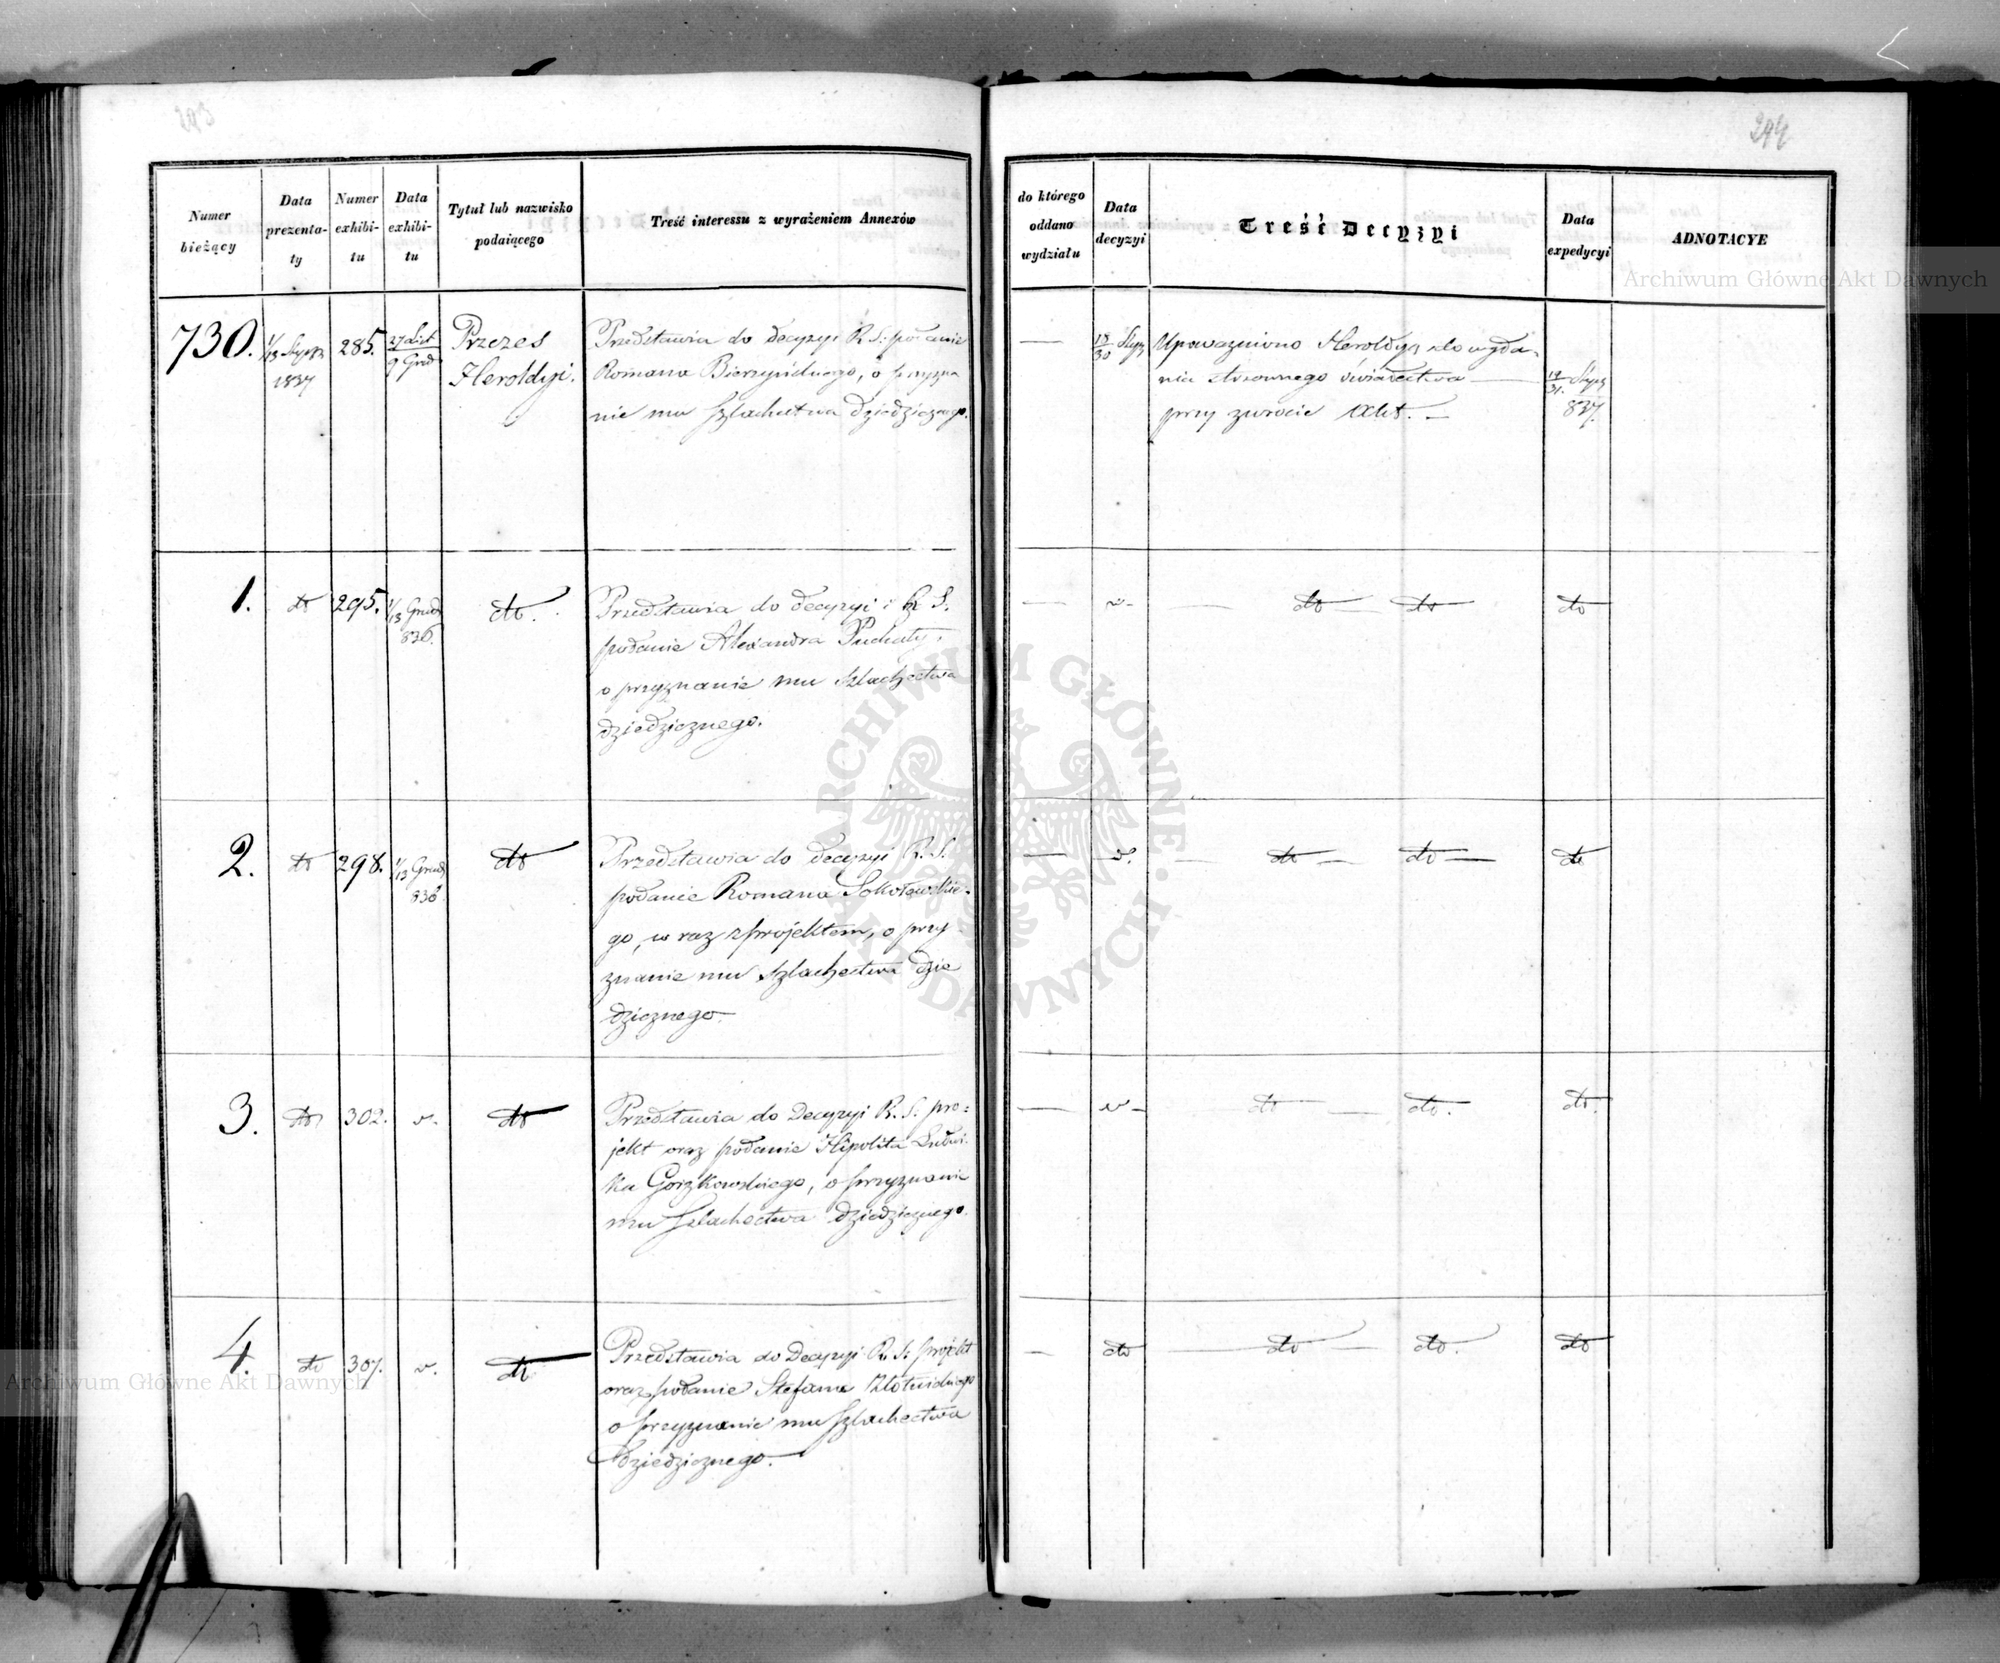 293
294
Numer bieżący
Data prezenta-ty
Numer exhibi-tu
Data exhibi-tu
Tytuł lub nazwisko podaiącego
Treść interessu z wyrażeniem Annexów
do którego oddano wydziału
Data decyzyi
Treść Decyzyi
Data expedycyi
ADNOTACYE
Archiwum Główne Akt Dawnych
730. 1/13 Stycz 1837 285. 27 List / 9 Grud
Prezes
Heroldyi.
Przedstawia do decyzyi R. S. podanie
Romana Bierzyńskiego, o przyzna
nie mu szlachectwa dziedzicznego.
— 18/30 Stycz
Upoważniono Heroldyą do wyda-
nia stosownego świadectwa —
przy zwrocie Akt. —
19/31. Stycz
837.
1. do 295. 1/13 Grud 836. do.
Przedstawia do decyzyi R. S.
podanie Alexandra Puchały,
o przyznanie mu szlachectwa
dziedzicznego.
— v- — do — do do
2. do 298. 1/13 Grud 836 do
Przedstawia do decyzyi R. S.
podanie Romana Sokołowskie-
go, w raz z projektem, o przy-
znanie mu szlachectwa dzie
dzicznego.
— v. — do — do — do
3. do 302. v. do
Przedstawia do Decyzyi R. S. pro-
jekt oraz podanie Hipolita Ludwi-
ka Gorzkowskiego, o przyznanie
mu szlachectwa dziedzicznego.
— v- do — do. do.
4. do 307. v. do
Przedstawia do Decyzyi R. S. projekt
oraz podanie Stefana Złotnickiego
o przyznanie mu szlachectwa
dziedzicznego.
— do — do — do. do
Archiwum Główne Akt Dawnych
ARCHIWUM GŁÓWNE AKT DAWNYCH